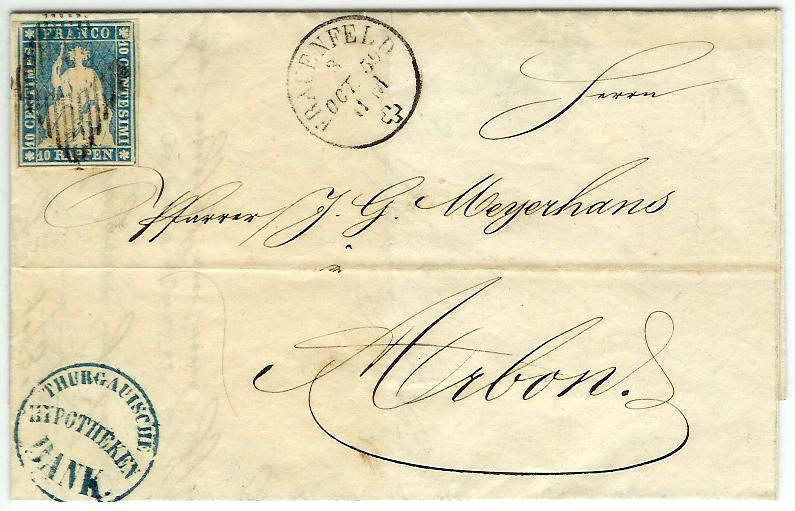 FRANCO
10 CENTIMES
10 CENTESIMI
10 RAPPEN
FRAUENFELD
OCT
Herrn
Pfarrer J. G. Meyerhans
in
Arbon.
THURGAUISCHE
HYPOTHEKEN
BANK.